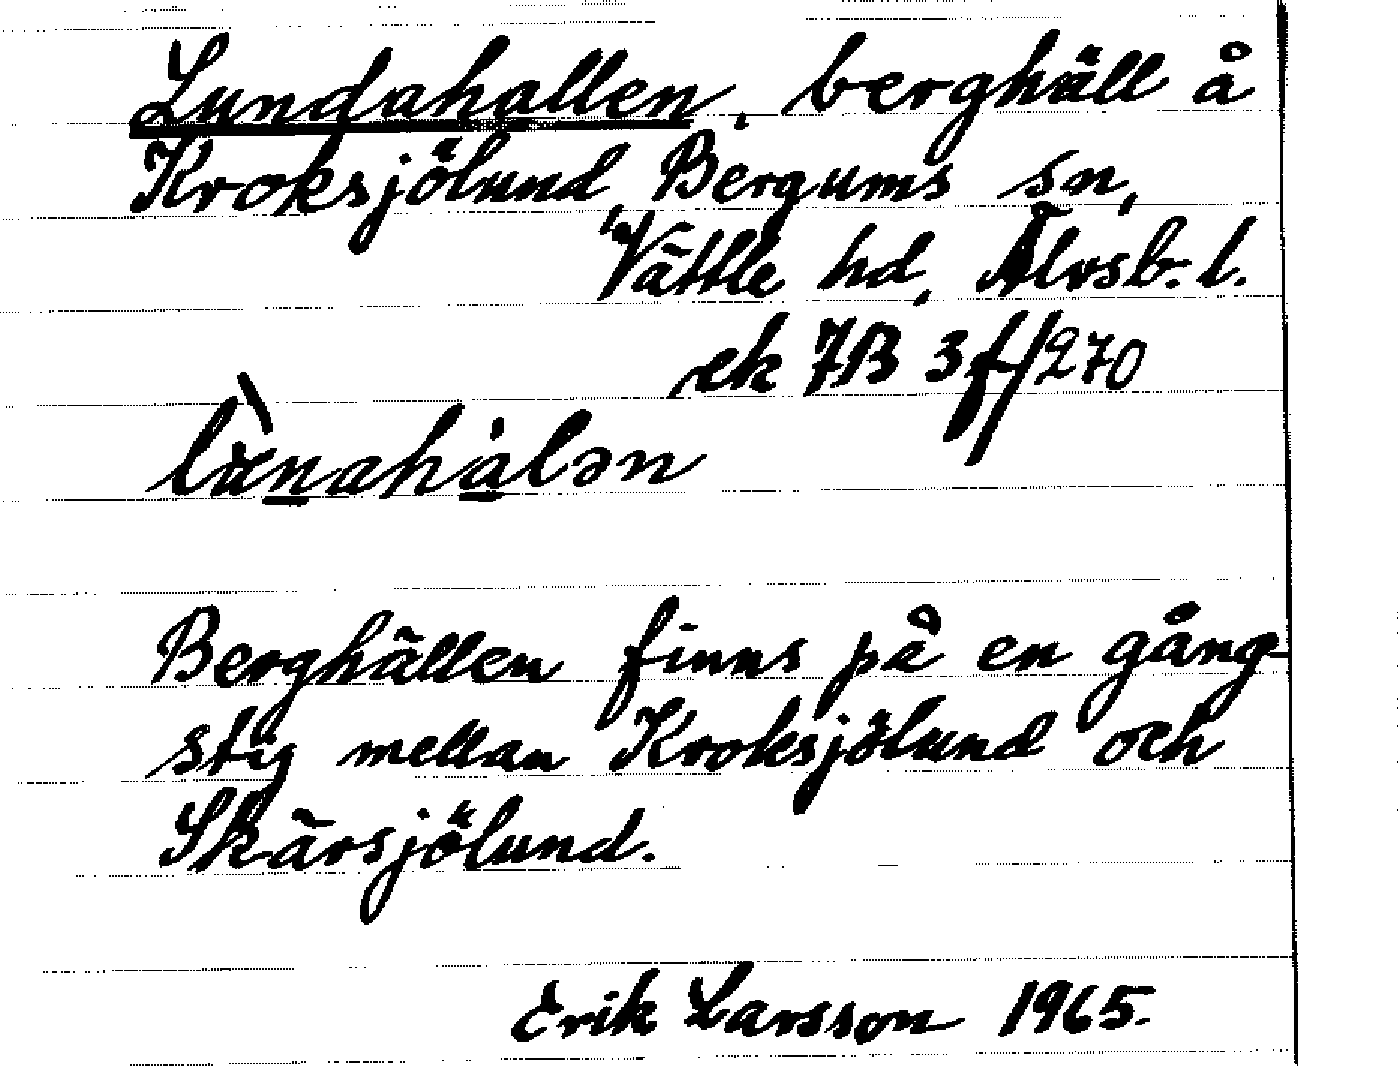 Lundahallen, berghäll å
Kroksjölund, Bergums sn,
Vättle hd, Älvsb. l.
ek 7B 3f/270
Berghällen finns på en gång-
stig mellan Kroksjölund och
Skärsjölund.
Erik Larsson 1965.